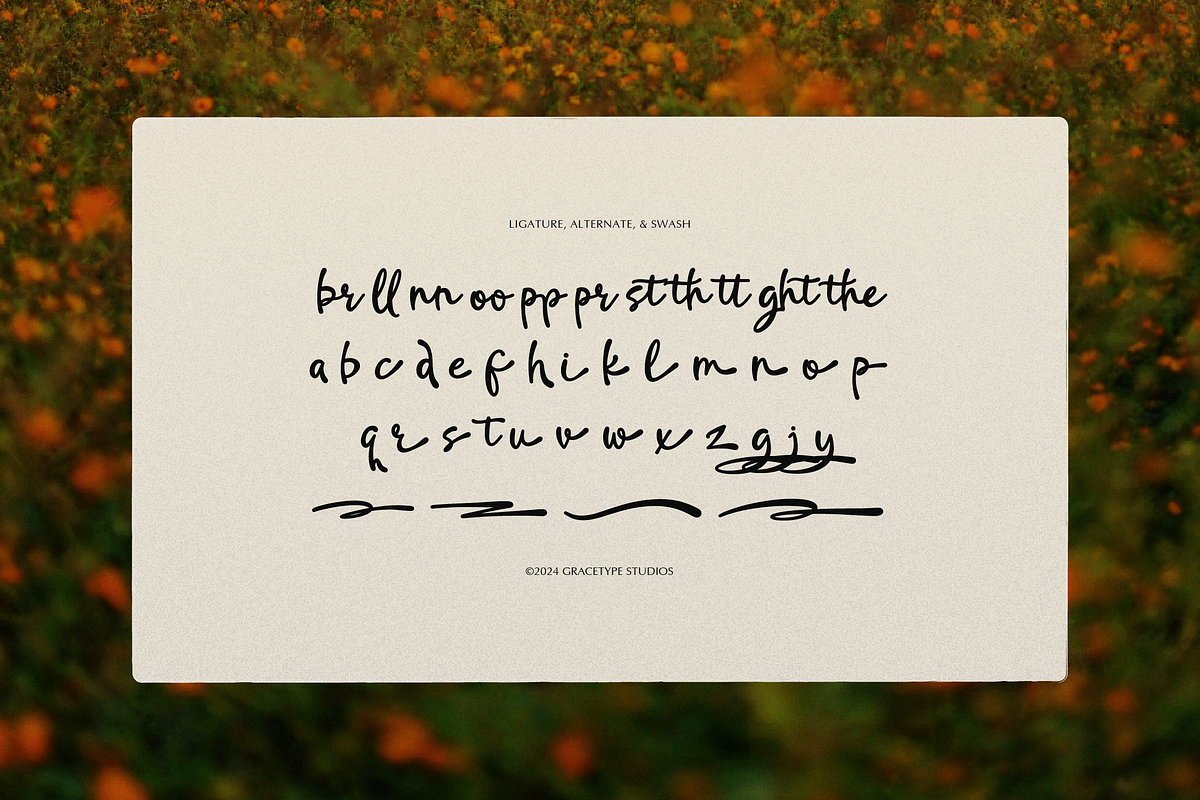 LIGATURE, ALTERNATE, & SWASH
br ll nn oo pp pr st th tt ght the
a b c d e f h i k l m n o p
q r s t u v w x z g j y
©2024 GRACETYPE STUDIOS